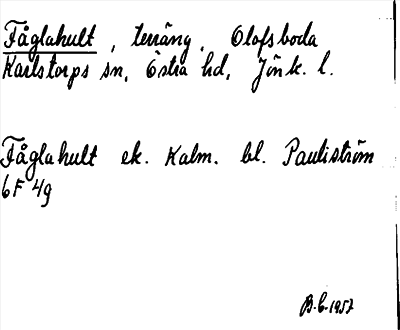 Fåglahult, terräng, Olofsboda
Karlstorps sn, Östra hd, Jönk. l.
Fåglahult ek. Kalm. bl. Pauliström
6F 4g
B.E. 1957